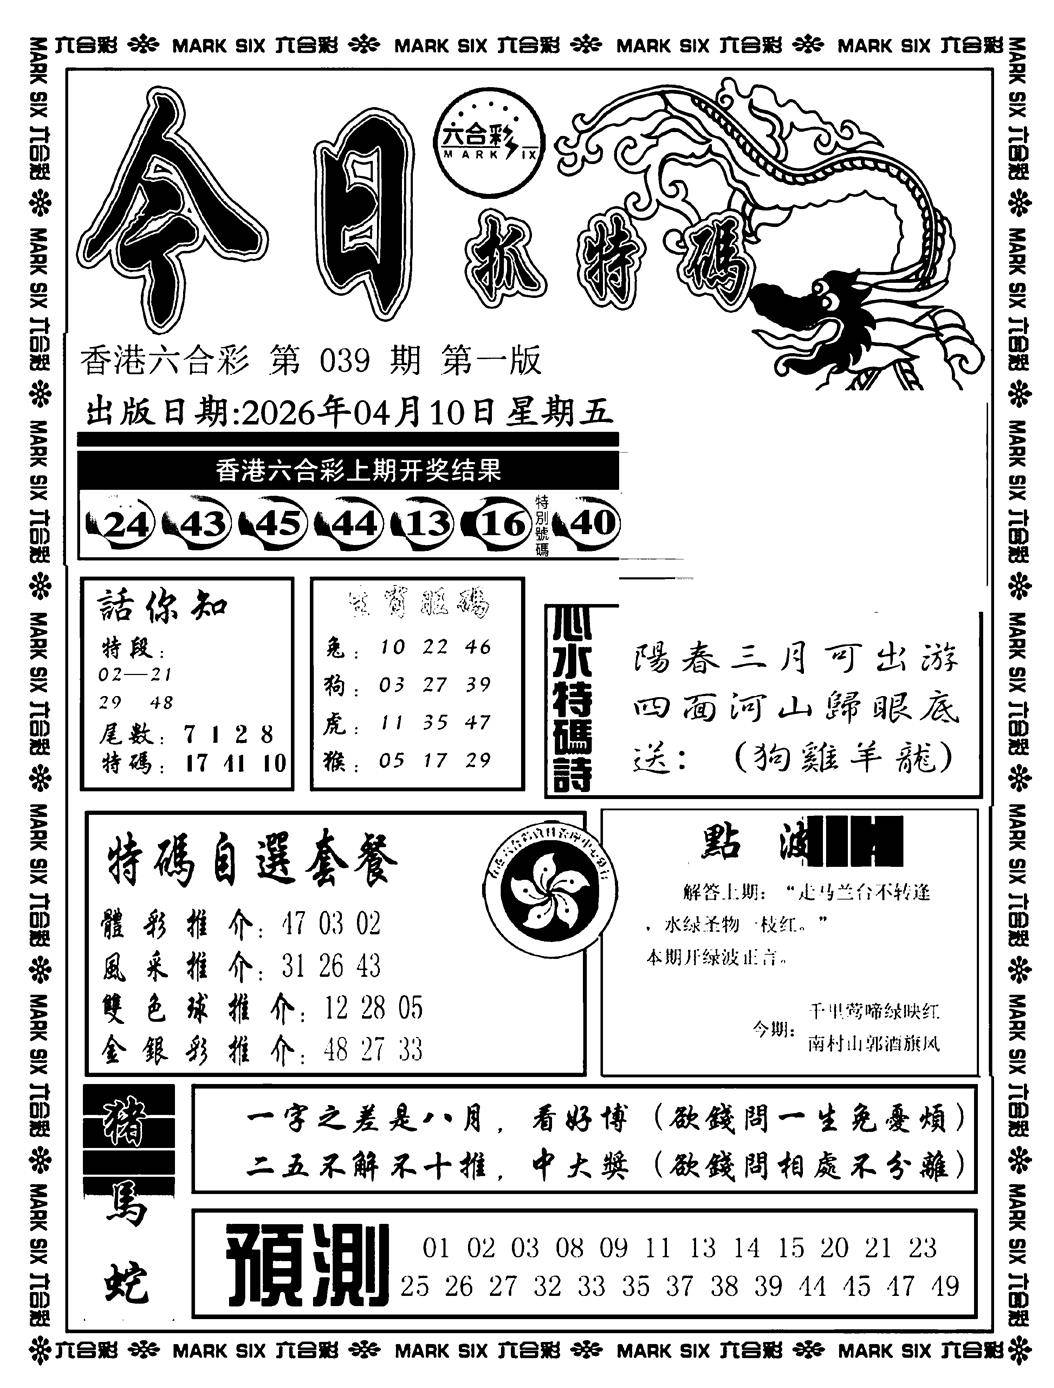 MARK SIX 六合彩 MARK SIX 六合彩 MARK SIX 六合彩 MARK SIX 六合彩
今日
六合彩
MARK SIX
抓特碼
香港六合彩 第 039 期 第一版
出版日期:2026年04月10日星期五
香港六合彩上期开奖结果
24 43 45 44 13 16 特別號碼 40
話你知
特段：
02—21
29 48
尾數：7 1 2 8
特碼：17 41 10
兔：10 22 46
狗：03 27 39
虎：11 35 47
猴：05 17 29
心水特碼詩
陽春三月可出游
四面河山歸眼底
送：（狗雞羊龍）
特碼自選套餐
體彩推介：47 03 02
風采推介：31 26 43
雙色球推介：12 28 05
金銀彩推介：48 27 33
點波
解答上期：“走马兰台不转逢
，水绿圣物一枝红。”
本期开绿波正言。
今期：
千里莺啼绿映红
南村山郭酒旗风
猪
馬
蛇
一字之差是八月，看好博（欲錢問一生免憂煩）
二五不解不十推，中大獎（欲錢問相處不分離）
預測
01 02 03 08 09 11 13 14 15 20 21 23
25 26 27 32 33 35 37 38 39 44 45 47 49
六合彩 MARK SIX 六合彩 MARK SIX 六合彩 MARK SIX 六合彩 MARK SIX 六合彩